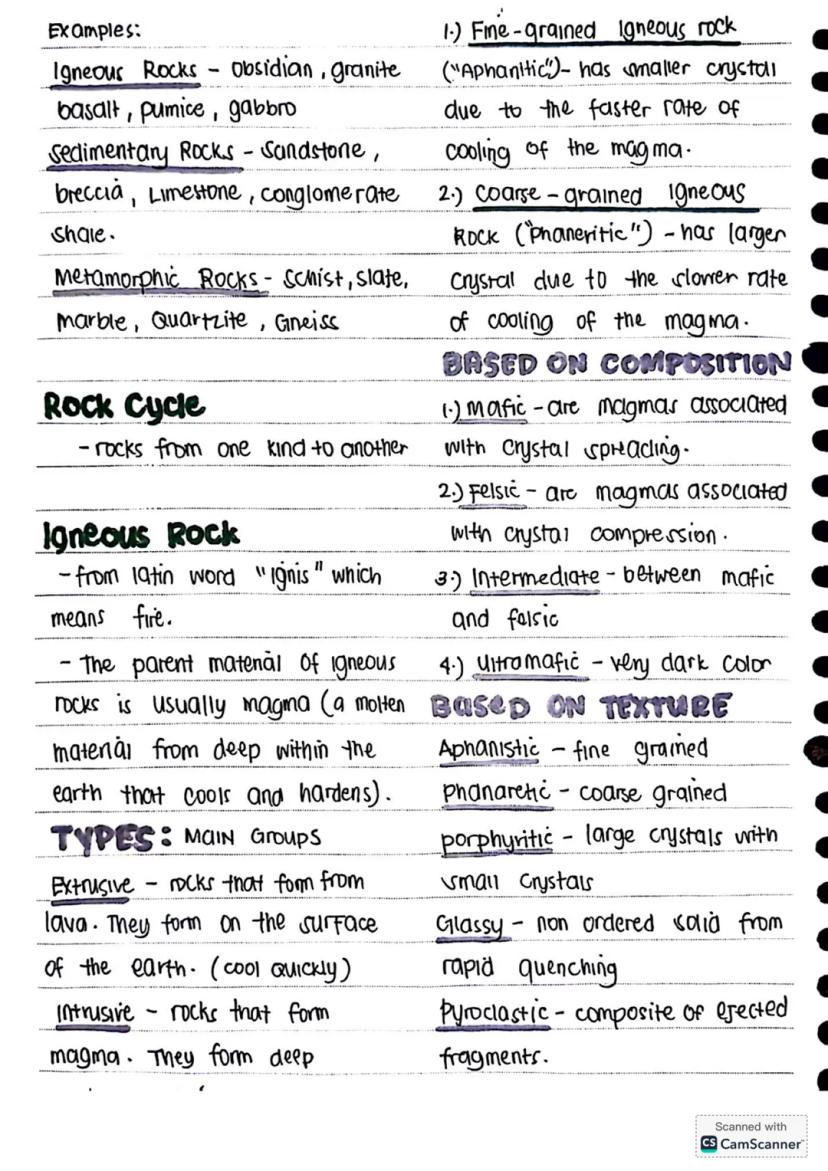 Examples:
Igneous Rocks - Obsidian, granite
basalt, pumice, gabbro
Sedimentary Rocks - Sandstone,
breccia, Limestone, conglomerate
shale.
Metamorphic Rocks - Schist, slate,
marble, Quartzite, Gneiss
Rock Cycle
- rocks from one kind to another
Igneous Rock
- from latin word "Ignis" which
means fire.
- The parent material of igneous
rocks is usually magma (a molten
material from deep within the
earth that cools and hardens).
TYPES: MAIN GROUPS
Extrusive - rocks that form from
lava. They form on the surface
of the earth. (cool quickly)
Intrusive - rocks that form
magma. They form deep
1.) Fine-grained Igneous rock
("Aphanitic") - has smaller crystal
due to the faster rate of
cooling of the magma.
2.) Coarse-grained Igneous
Rock ("phaneritic") - has larger
crystal due to the slower rate
of cooling of the magma.
BASED ON COMPOSITION
1.) Mafic - are magmas associated
with crystal spreading.
2.) Felsic - are magmas associated
with crystal compression.
3.) Intermediate - between mafic
and felsic
4.) Ultramafic - very dark color
BASED ON TEXTURE
Aphanistic - fine grained
phanaretic - coarse grained
porphyritic - large crystals with
small crystals
Glassy - non ordered solid from
rapid quenching
Pyroclastic - composite of ejected
fragments.
Scanned with
CS CamScanner